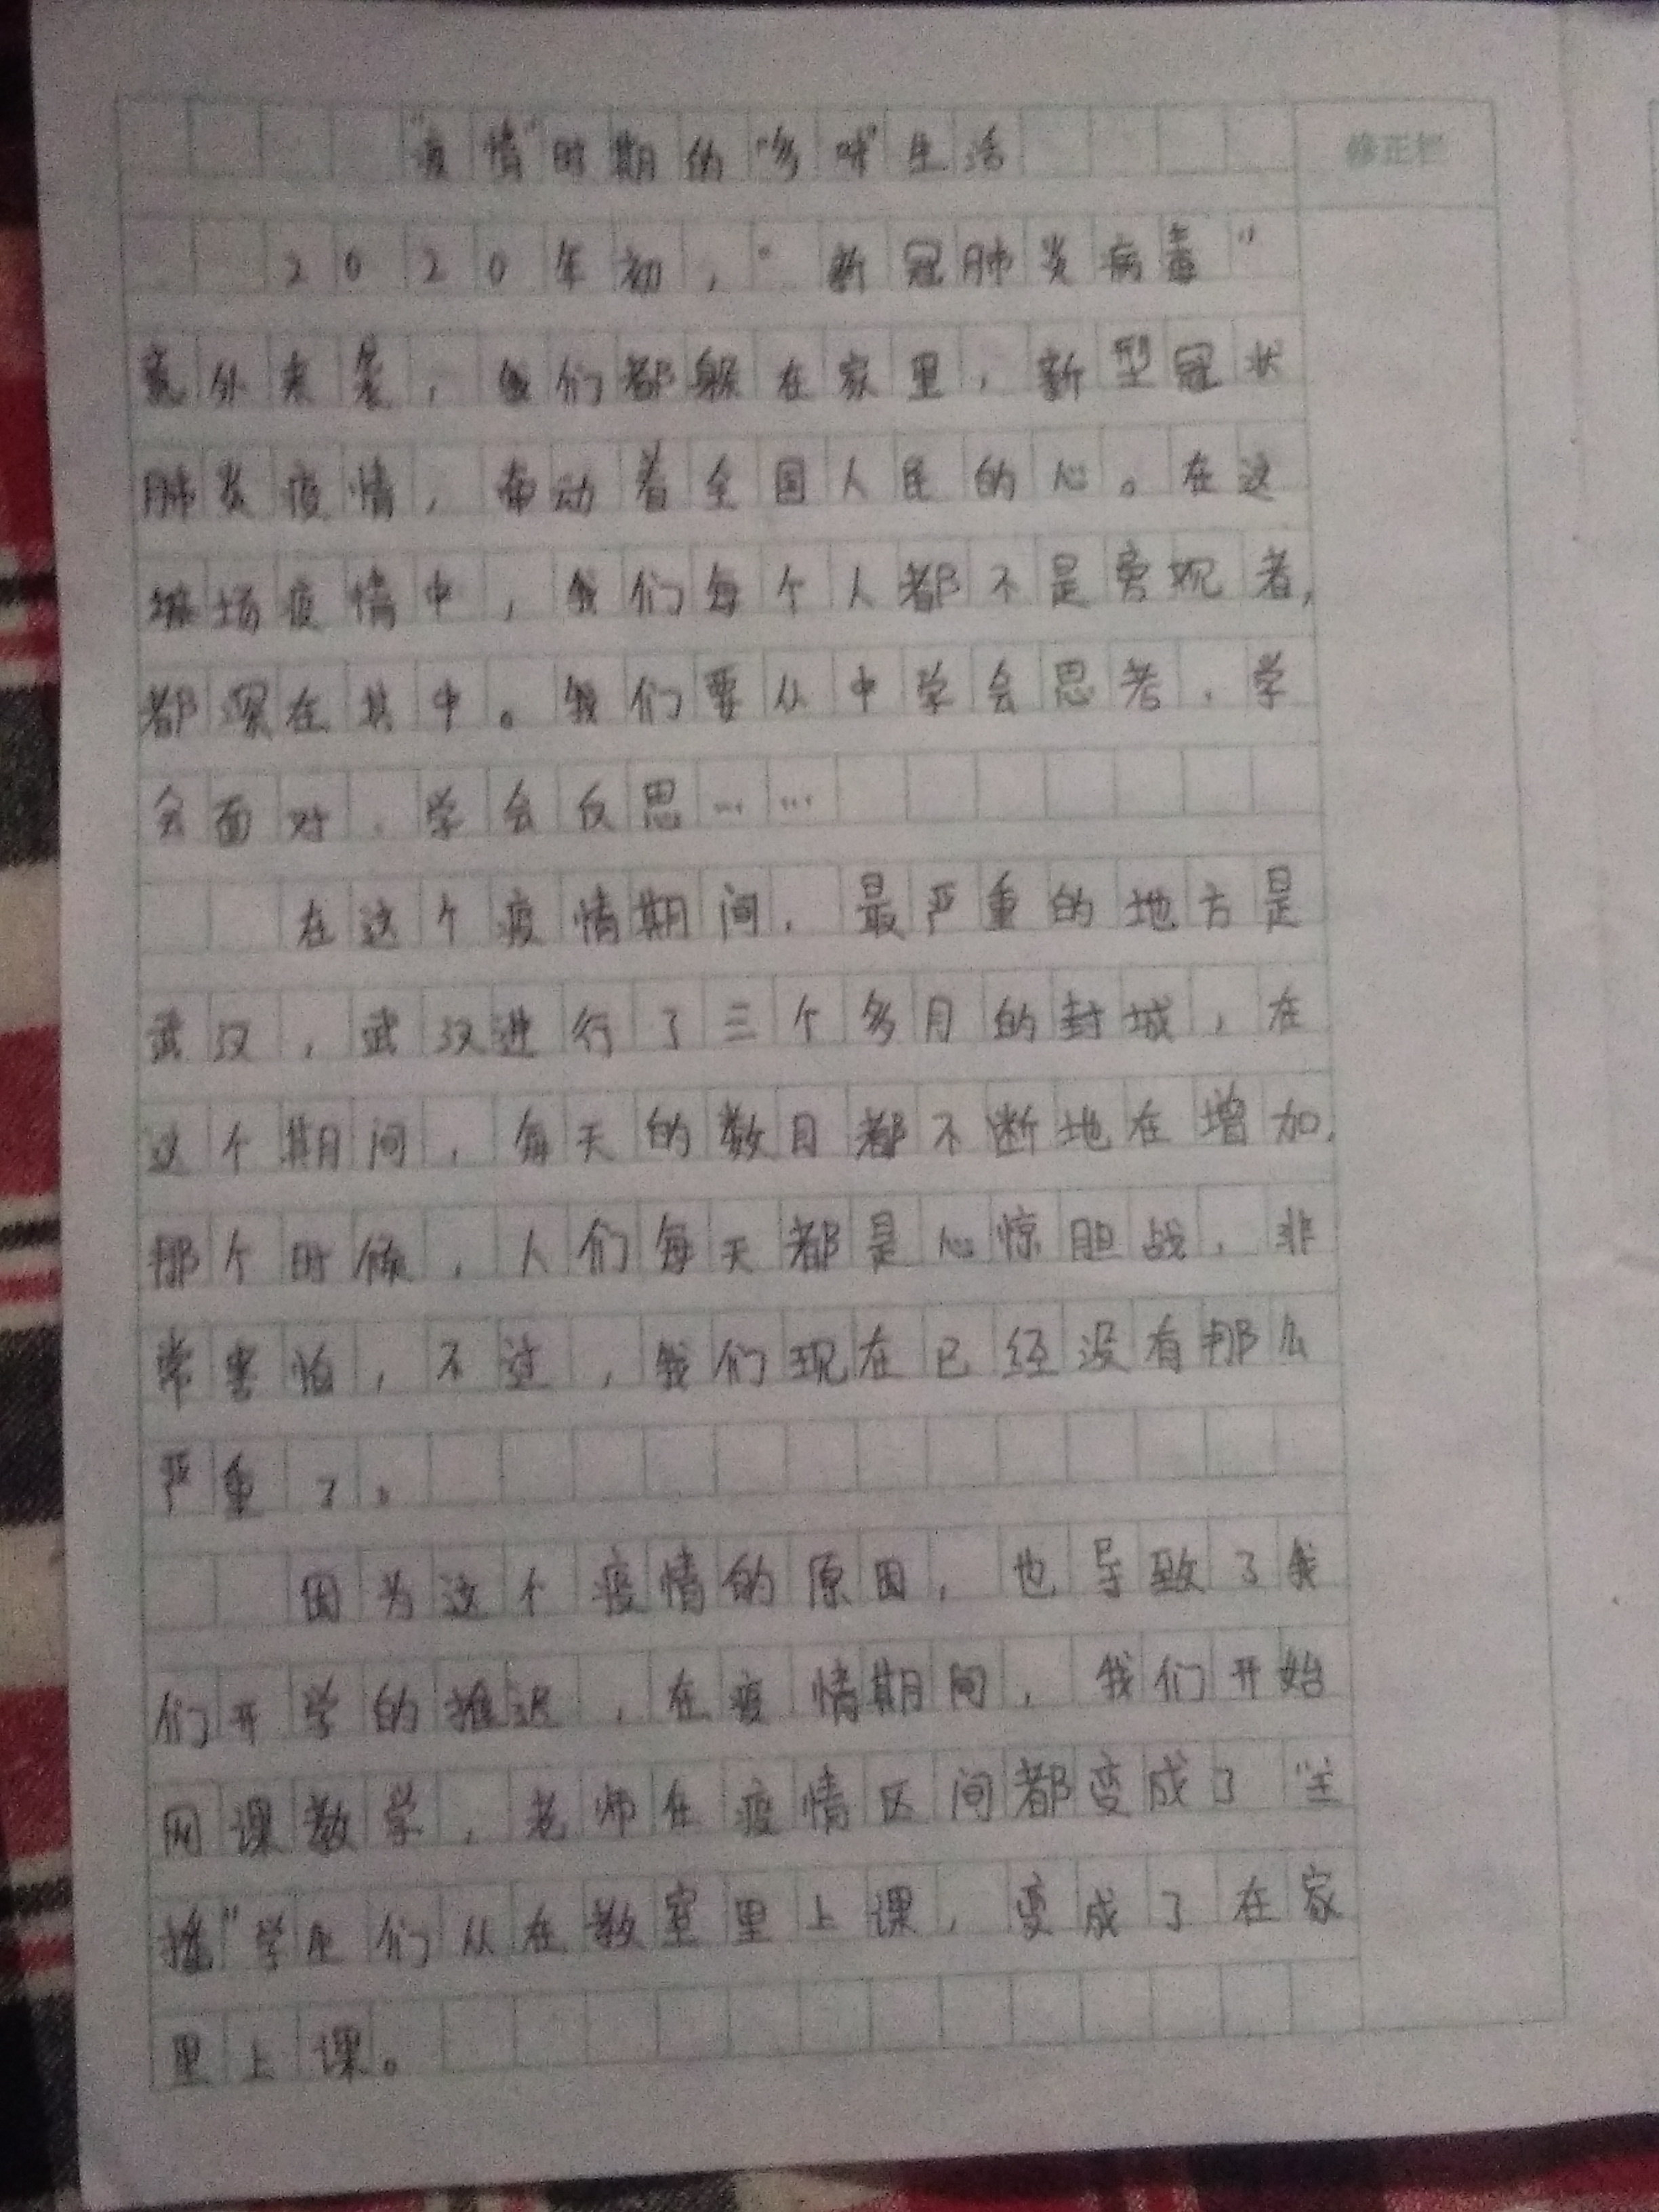 "疫情"时期的"多味"生活
修正栏
2020年初,"新冠肺炎病毒"
意外来袭,我们都躲在家里,新型冠状
肺炎疫情,牵动着全国人民的心。在这
场疫情中,我们每个人都不是旁观者,
都深在其中。我们要从中学会思考,学
会面对,学会反思……
在这个疫情期间,最严重的地方是
武汉,武汉进行了三个多月的封城,在
这个期间,每天的数目都不断地在增加,
那个时候,人们每天都是心惊胆战,非
常害怕,不过,我们现在已经没有那么
严重了。
因为这个疫情的原因,也导致了我
们开学的推迟,在疫情期间,我们开始
网课教学,老师在疫情区间都变成了"主
播"学生们从在教室里上课,变成了在家
里上课。